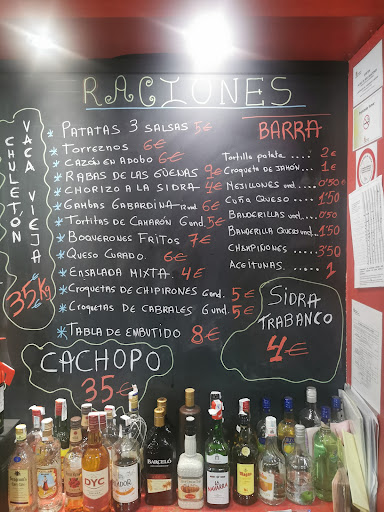 RACIONES
CHULETÓN
VACA VIEJA
35€ Kg
* PATATAS 3 SALSAS 5€
* TORREZNOS 6€
* CAZÓN EN ADOBO 6€
* RABAS DE LAS GÜENAS 9€
* CHORIZO A LA SIDRA 4€
* GAMBAS GABARDINA 12 und 6€
* TORTITAS DE CAMARÓN 6 und. 5€
* BOQUERONES FRITOS 7€
* QUESO CURADO 6€
* ENSALADA MIXTA 4€
* CROQUETAS DE CHIPIRONES 6 und. 5€
* CROQUETAS DE CABRALES 6 und. 5€
* TABLA DE EMBUTIDO 8€
CACHOPO
35€
BARRA
Tortilla patata .... 2€
Croqueta de JAMÓN. 1€
MEJILLONES und. 0'50€
CUÑA QUESO 1'50
BANDERILLAS und. 0'50
BANDERILLA QUESO und 1'50
CHAMPIÑONES ...... 3'50
ACEITUNAS ........ 1
SIDRA
TRABANCO
4€
DYC
BARCELÓ